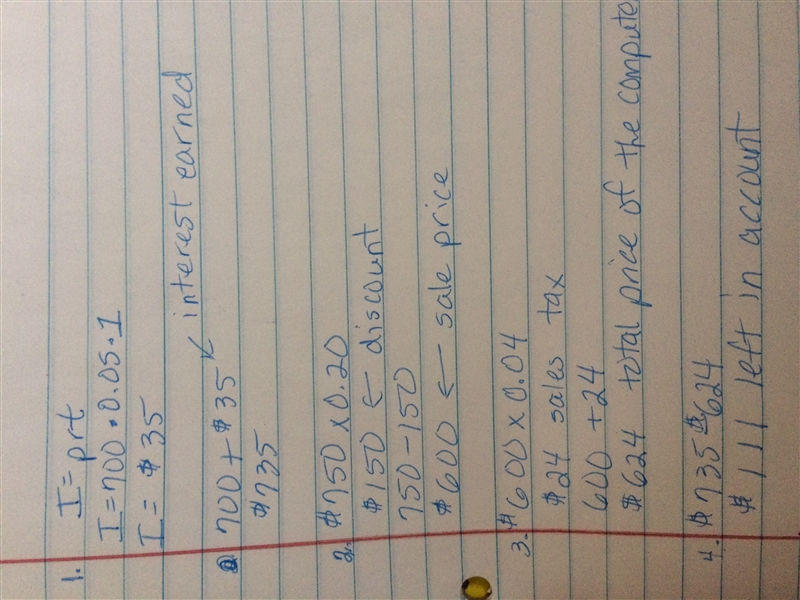 1. I = prt
I = 700 • 0.05 • 1
I = $35
interest earned
700 + $35
$735
2. $750 x 0.20
$150 ← discount
750 - 150
$600 ← sale price
3. $600 x 0.04
$24 sales tax
600 + 24
$624 total price of the compute
4. $735 - $624
$111 left in account